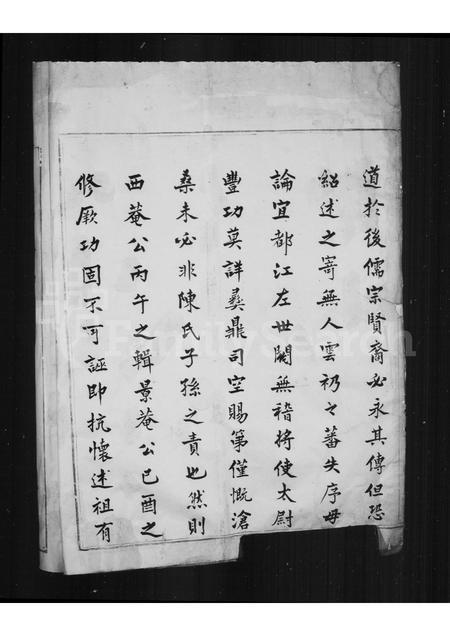 道於後儒宗賢裔必永其傳但恐
紹述之寄無人雲礽之蕃失序毋
論宜都江左世閥無稽將使太尉
豐功莫詳彞鼎司空賜第僅慨滄
桑未必非陳氏子孫之責也然則
西菴公丙午之輯景菴公己酉之
修厥功固不可誣即抗懷述祖有
FamilySearch